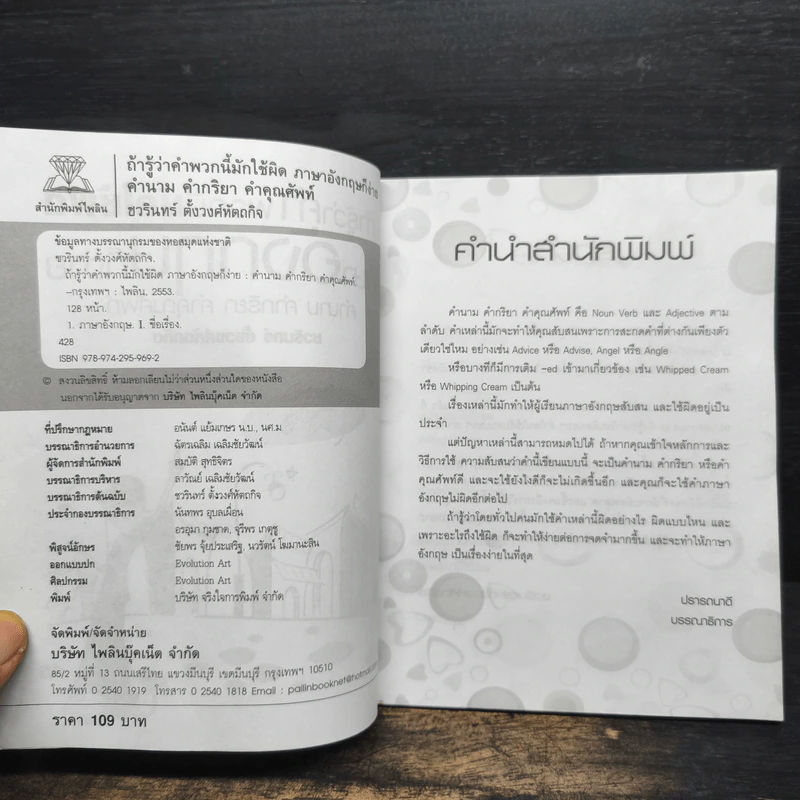 ถ้ารู้ว่าคำพวกนี้มักใช้ผิด ภาษาอังกฤษก็ง่าย
คำนาม คำกริยา คำคุณศัพท์
ชวรินทร์ ตั้งวงศ์หัตถกิจ
สำนักพิมพ์ไพลิน
ข้อมูลทางบรรณานุกรมของหอสมุดแห่งชาติ
ชวรินทร์ ตั้งวงศ์หัตถกิจ.
ถ้ารู้ว่าคำพวกนี้มักใช้ผิด ภาษาอังกฤษก็ง่าย : คำนาม คำกริยา คำคุณศัพท์.
–กรุงเทพฯ : ไพลิน, 2553.
128 หน้า.
1. ภาษาอังกฤษ. I. ชื่อเรื่อง.
428
ISBN 978-974-295-969-2
© สงวนลิขสิทธิ์ ห้ามลอกเลียนไม่ว่าส่วนหนึ่งส่วนใดของหนังสือ
นอกจากได้รับอนุญาตจาก บริษัท ไพลินบุ๊คเน็ต จำกัด
ที่ปรึกษากฎหมาย อนันต์ แย้มเกษร น.บ., นศ.ม.
บรรณาธิการอำนวยการ ฉัตรเฉลิม เฉลิมชัยวัฒน์
ผู้จัดการสำนักพิมพ์ สมบัติ สุทธิจิตร
บรรณาธิการบริหาร ลาวัณย์ เฉลิมชัยวัฒน์
บรรณาธิการต้นฉบับ ชวรินทร์ ตั้งวงศ์หัตถกิจ
ประจำกองบรรณาธิการ นันทพร อุบลเผื่อน
อรอุมา กุมชาด, จุรีพร เกตุชู
พิสูจน์อักษร ชัยพร จุ้ยประเสริฐ, นวรัตน์ โฆมานะสิน
ออกแบบปก Evolution Art
ศิลปกรรม Evolution Art
พิมพ์ บริษัท จริงใจการพิมพ์ จำกัด
จัดพิมพ์/จัดจำหน่าย
บริษัท ไพลินบุ๊คเน็ต จำกัด
85/2 หมู่ที่ 13 ถนนเสรีไทย แขวงมีนบุรี เขตมีนบุรี กรุงเทพฯ 10510
โทรศัพท์ 0 2540 1919 โทรสาร 0 2540 1818 Email : pailinbooknet@hotmail.com
ราคา 109 บาท
คำนำสำนักพิมพ์
คำนาม คำกริยา คำคุณศัพท์ คือ Noun Verb และ Adjective ตาม
ลำดับ คำเหล่านี้มักจะทำให้คุณสับสนเพราะการสะกดคำที่ต่างกันเพียงตัว
เดียวใช่ไหม อย่างเช่น Advice หรือ Advise, Angel หรือ Angle
หรือบางทีก็มีการเติม –ed เข้ามาเกี่ยวข้อง เช่น Whipped Cream
หรือ Whipping Cream เป็นต้น
เรื่องเหล่านี้มักทำให้ผู้เรียนภาษาอังกฤษสับสน และใช้ผิดอยู่เป็น
ประจำ
แต่ปัญหาเหล่านี้สามารถหมดไปได้ ถ้าหากคุณเข้าใจหลักการและ
วิธีการใช้ ความสับสนว่าคำนี้เขียนแบบนี้ จะเป็นคำนาม คำกริยา หรือคำ
คุณศัพท์ดี และจะใช้ยังไงดีก็จะไม่เกิดขึ้นอีก และคุณก็จะใช้คำภาษา
อังกฤษไม่ผิดอีกต่อไป
ถ้ารู้ว่าโดยทั่วไปคนมักใช้คำเหล่านี้ผิดอย่างไร ผิดแบบไหน และ
เพราะอะไรถึงใช้ผิด ก็จะทำให้ง่ายต่อการจดจำมากขึ้น และจะทำให้ภาษา
อังกฤษ เป็นเรื่องง่ายในที่สุด
ปรารถนาดี
บรรณาธิการ